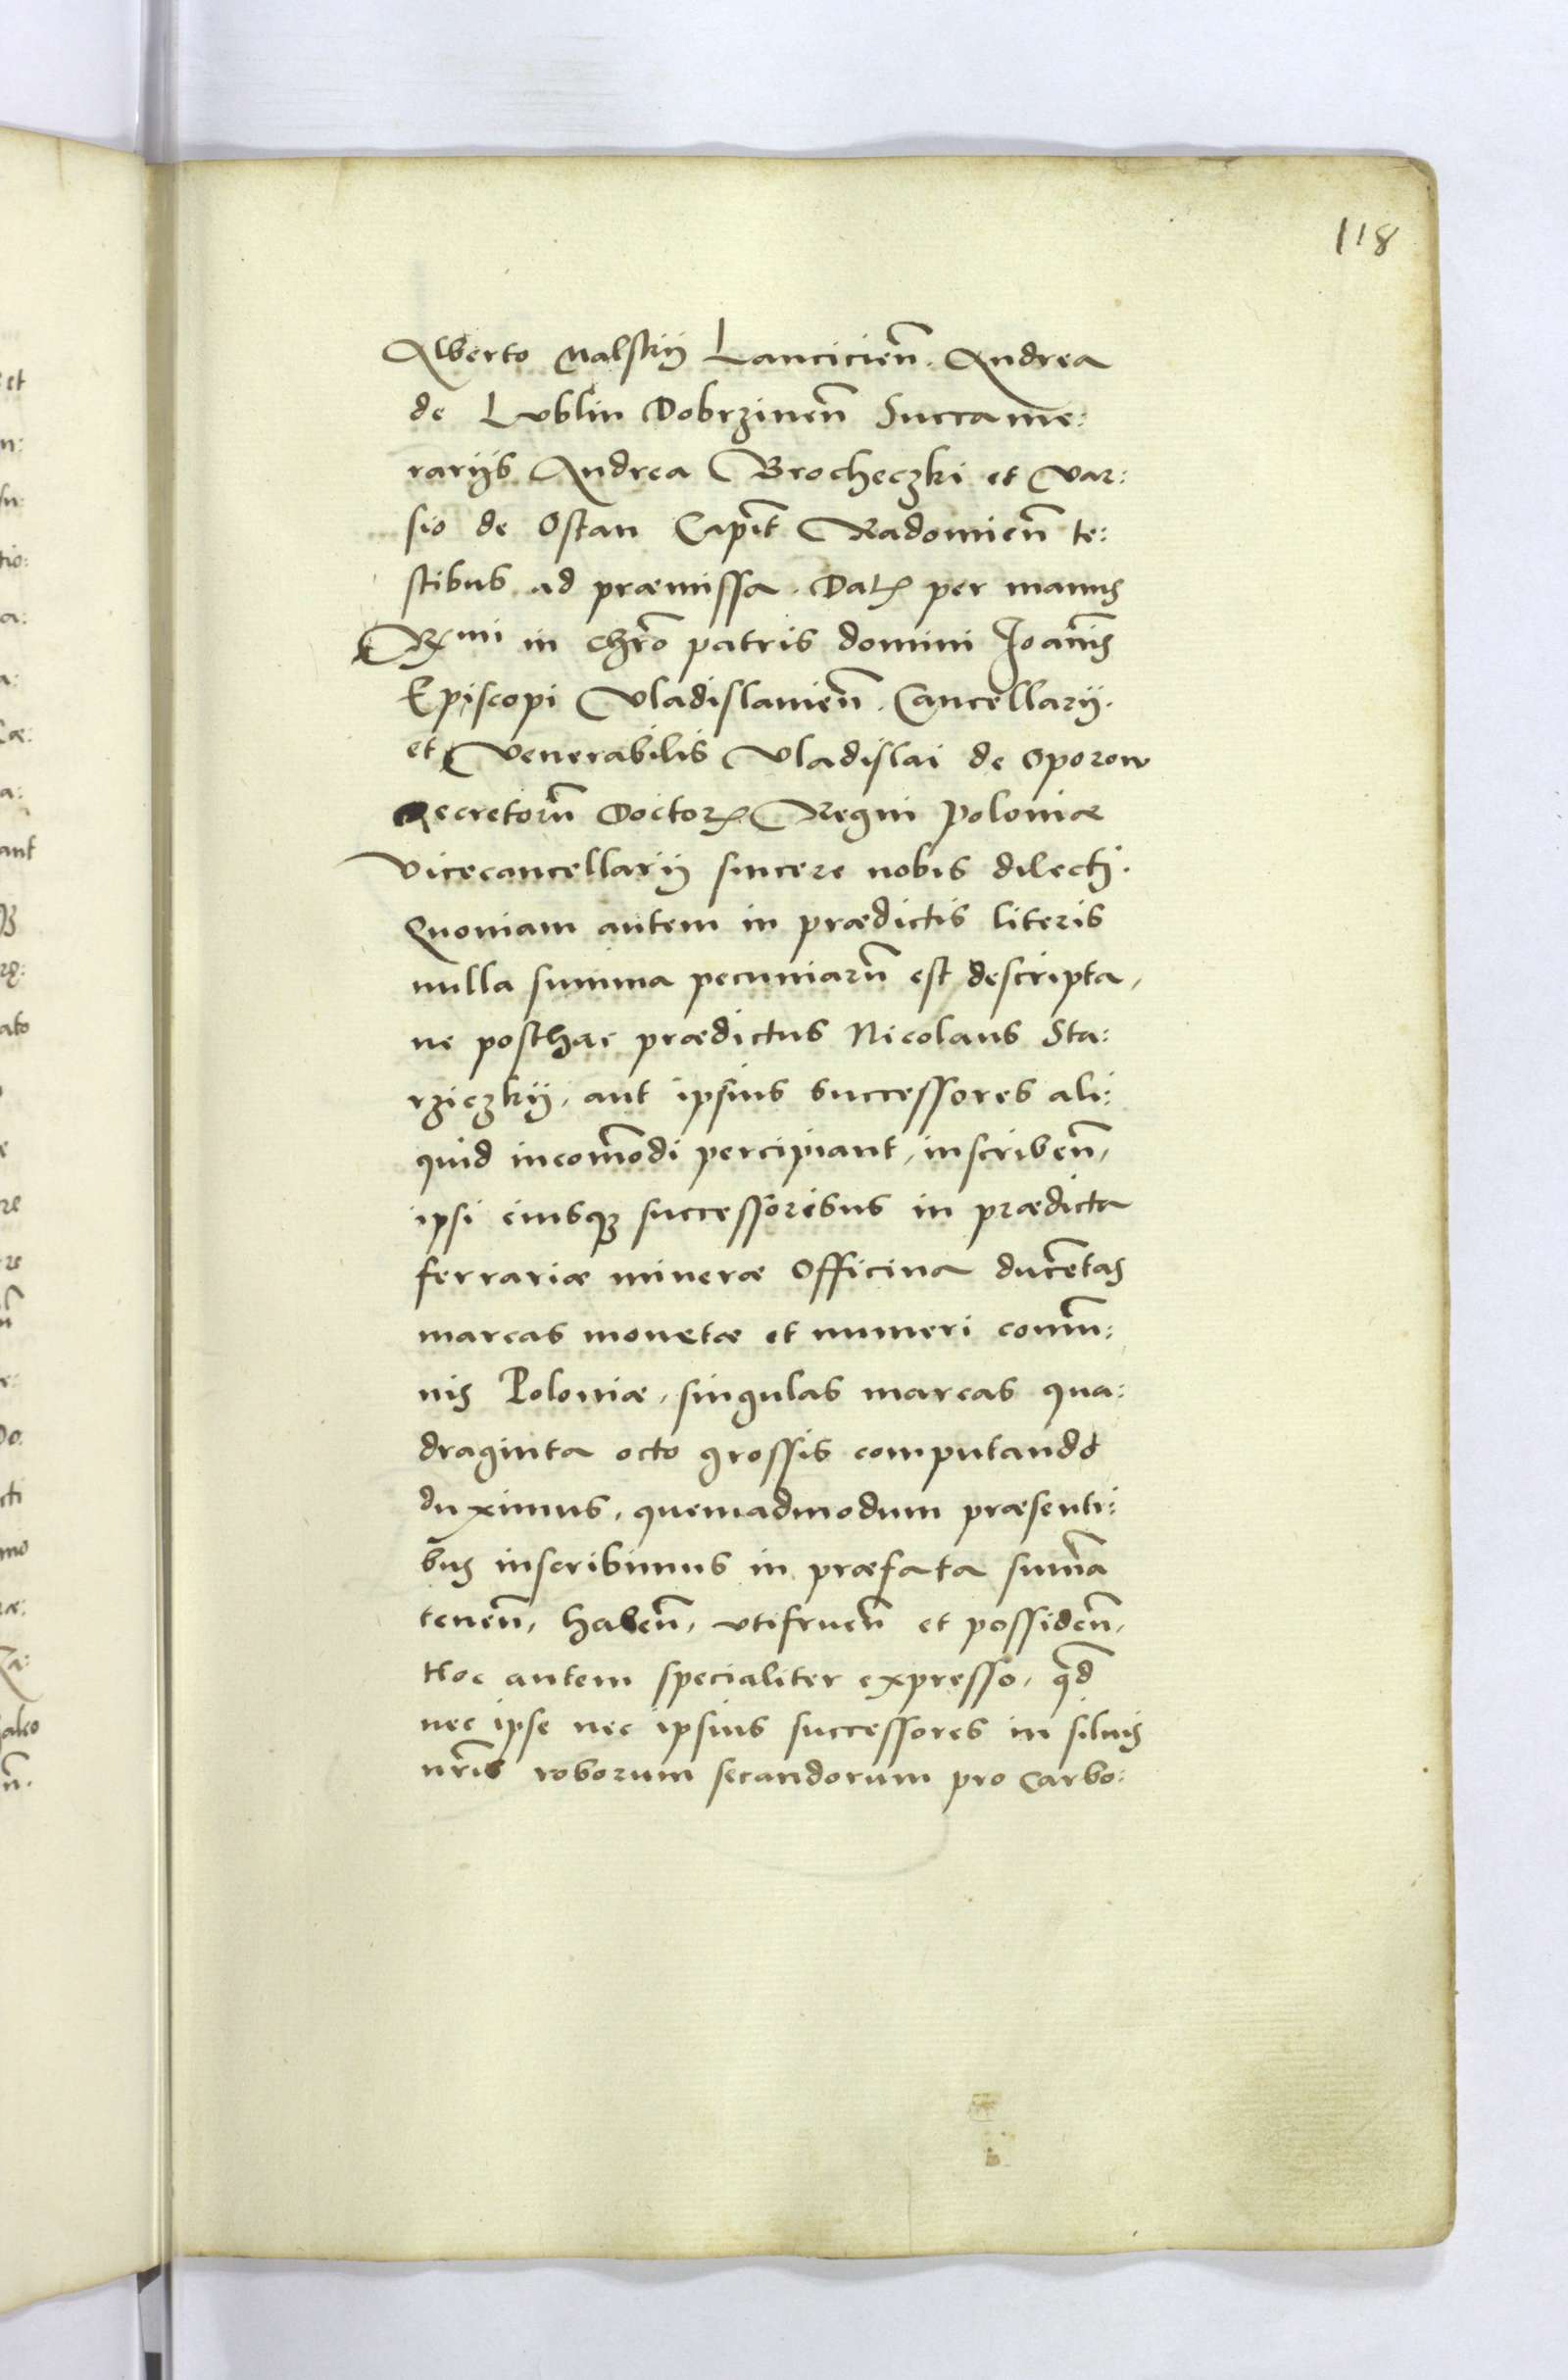 118
Alberto Malskij Lancicien̄. Andrea
de Lublin Dobrzinen̄ Succame:
rarijs Andrea Brocheczki et Var:
sio de Ostan Capit̄ Radomien̄ te:
stibus ad præmissa. Datꝝ per manus
Rꝫmi in chr̄o patris domini Joan̄is
Episcopi Vladislauien̄. Cancellarij.
et Venerabilis Vladislai de Oporow
Decretorū Doctorꝝ Regni Poloniæ
Vicecancellarij sincere nobis dilecti.
Quoniam autem in prædictis literis
nulla summa pecuniarū est descripta,
ne posthac prædictus Nicolaus Sta:
rziczkij, aut ipsius successores ali:
quid incom̄odi percipiant, inscriben̄,
ipsi eiusqꝫ successoribus in prædicta
ferrariæ mineræ Officina ducētas
marcas monetæ et numeri com̄u:
nis Poloniæ, singulas marcas qua:
draginta octo grossis computando
duximus, quemadmodum præsenti:
bus inscribimus in præfata sum̄a
tenen̄, haben̄, vtifruen̄ et possiden̄,
Hoc autem specialiter expresso, qd̄
nec ipse nec ipsius successores in siluis
nr̄is roborum secandorum pro carbo: